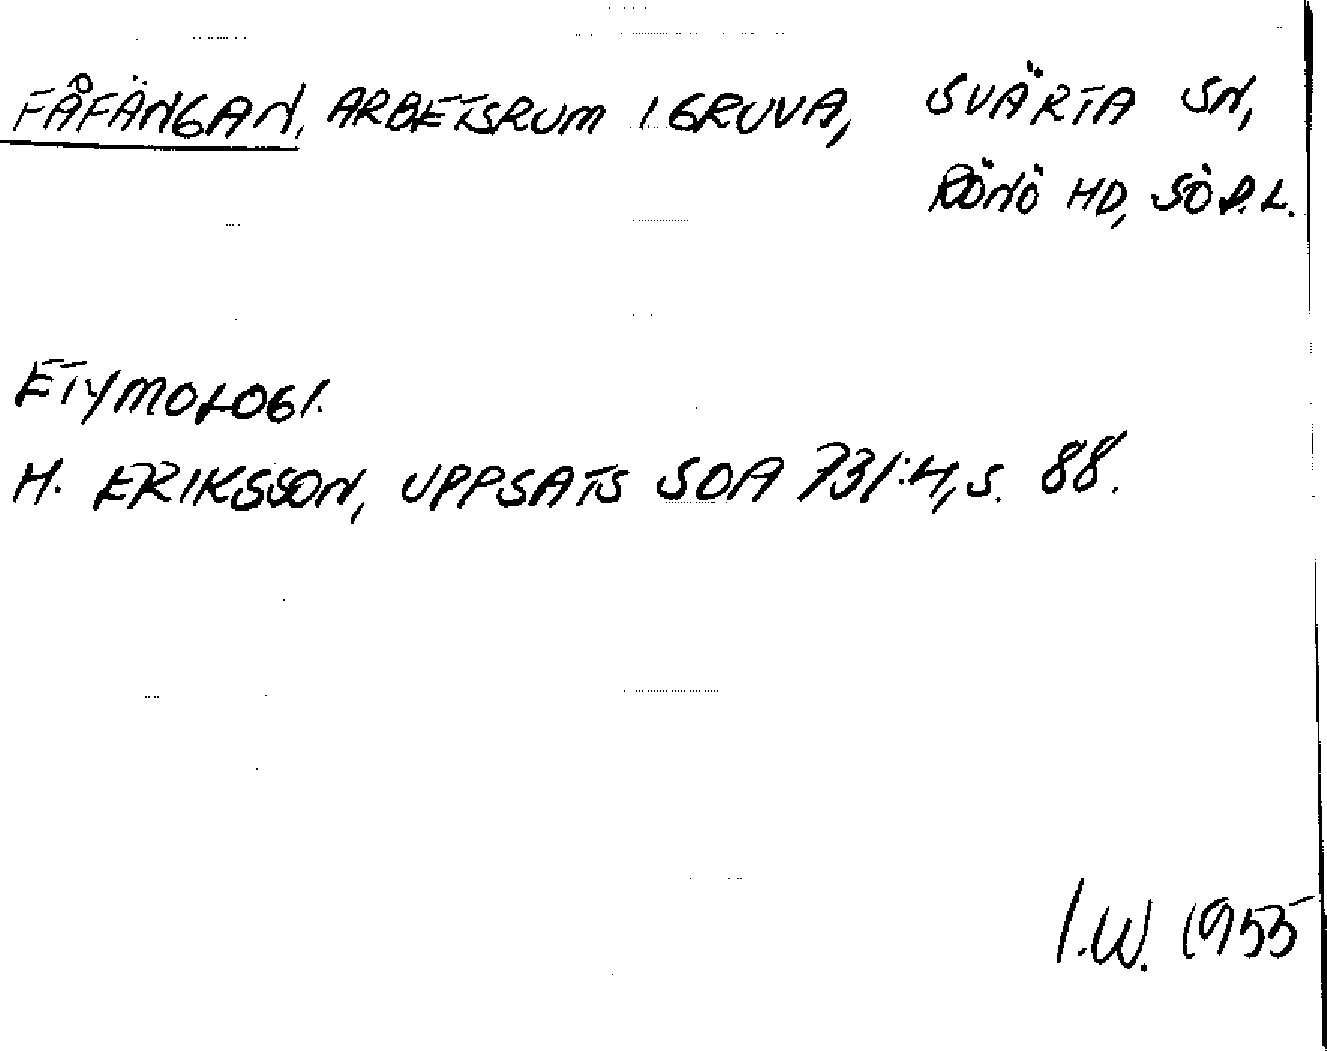 FÅFÄNGAN, ARBETSRUM I GRUVA, SVÄRTA SN,
RÖNÖ HD, SÖDL.
ETYMOLOGI.
H. ERIKSSON, UPPSATS SOA 731:4, S. 88.
I.W. 1955